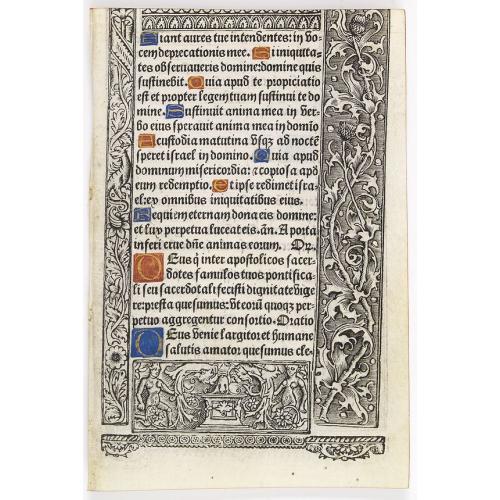 Fiant aures tue intendentes: in vo-
cem deprecationis mee. Si iniquita-
tes obseruaueris domine: domine quis
sustinebit. Quia apud te propiciatio
est et propter legem tuam sustinui te do
mine. Sustinuit anima mea in ver-
bo eius sperauit anima mea in domīo
A custodia matutina vsqʒ ad noctē
speret israel in domino. Quia apud
dominum misericordia: ⁊ copiosa apd
eum redemptio. Et ipse redimet isra-
el: ex omnibus iniquitatibus eius.
Requiem eternam dona eis domine:
et lux perpetua luceat eis. añ. A porta
inferi erue dñe animas eorum. Or.
Deus q̇ inter apostolicos sacer-
dotes famulos tuos pontifica-
li seu sacerdotali fecisti dignitate vige
re: presta quesumus: vt eorū quoqʒ per-
petuo aggregentur consortio. Oratio
Deus venie largitor et humane
salutis amator quesumus cle-